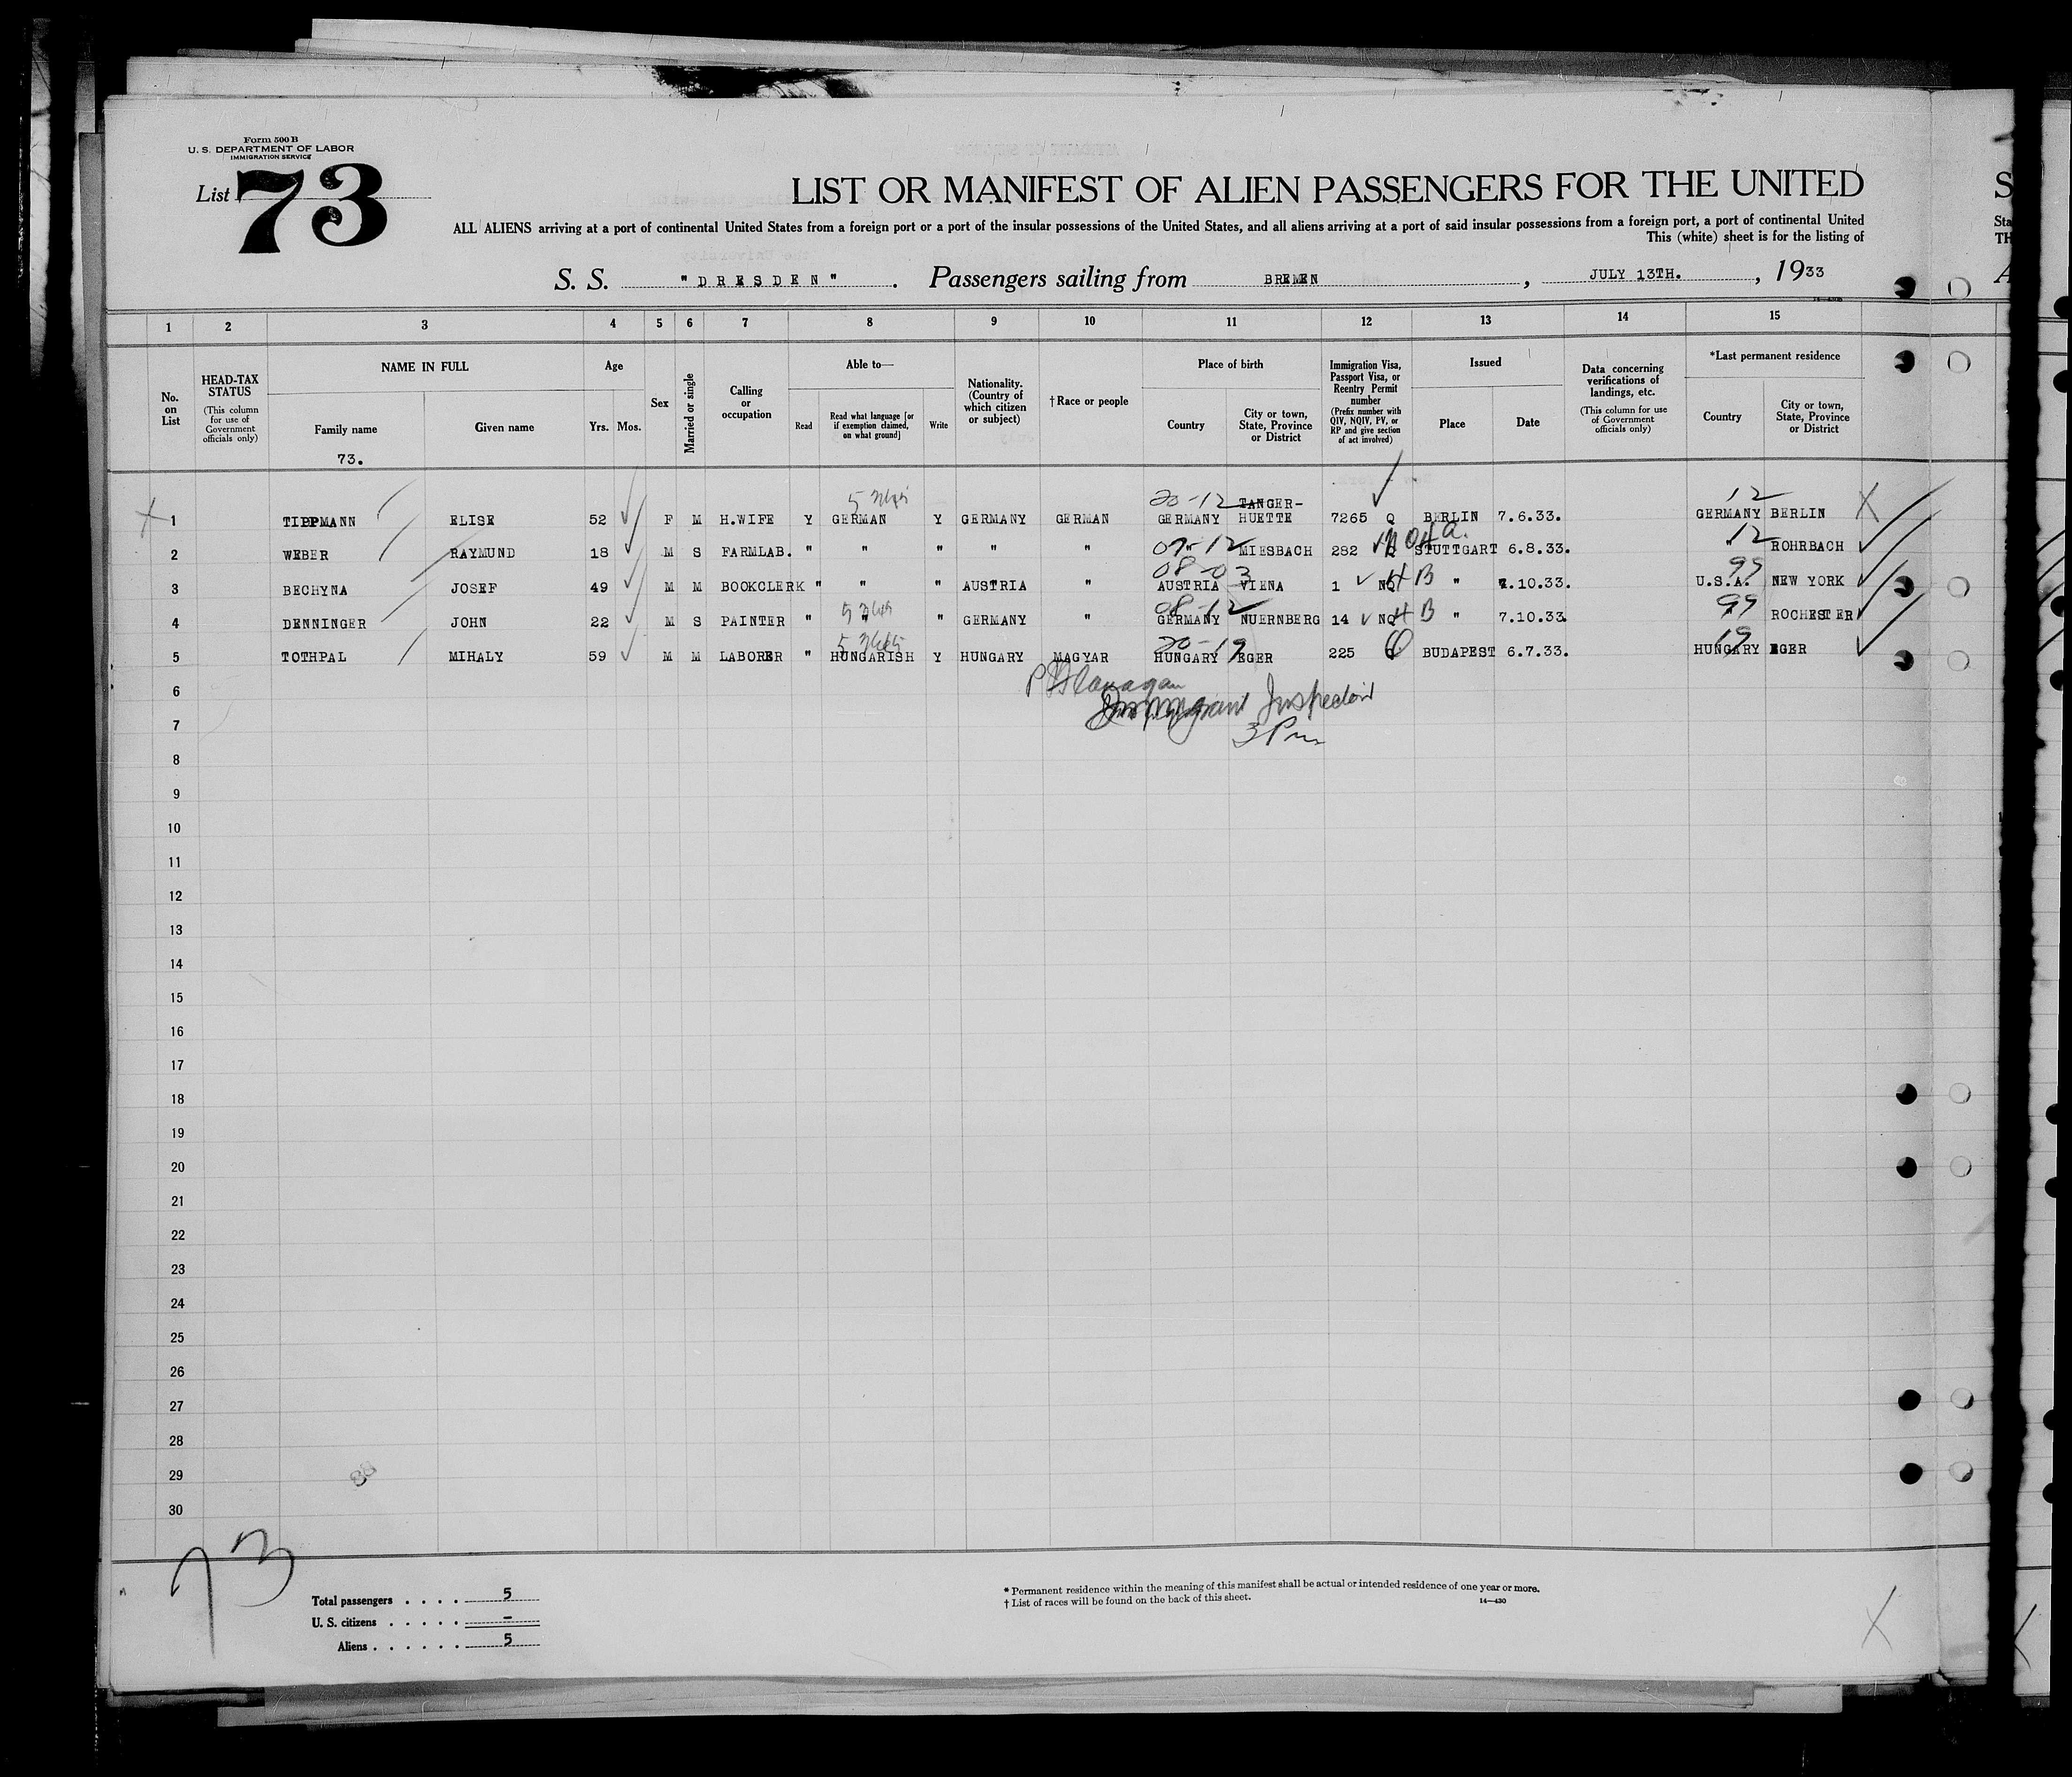 Form 500 B
U. S. DEPARTMENT OF LABOR
IMMIGRATION SERVICE
List 73
LIST OR MANIFEST OF ALIEN PASSENGERS FOR THE UNITED
ALL ALIENS arriving at a port of continental United States from a foreign port or a port of the insular possessions of the United States, and all aliens arriving at a port of said insular possessions from a foreign port, a port of continental United
This (white) sheet is for the listing of
S. S. "DRESDEN". Passengers sailing from BREMEN, JULY 13TH., 1933
1 2 3 4 5 6 7 8 9 10 11 12 13 14 15
No. on List
HEAD-TAX STATUS
(This column for use of Government officials only)
NAME IN FULL
Family name
Given name
73.
Age
Yrs. Mos.
Sex
Married or single
Calling or occupation
Able to—
Read
Read what language [or if exemption claimed, on what ground]
Write
Nationality. (Country of which citizen or subject)
†Race or people
Place of birth
Country
City or town, State, Province or District
Immigration Visa, Passport Visa, or Reentry Permit number
(Prefix number with QIV, NQIV, PV, or RP and give section of act involved)
Issued
Place
Date
Data concerning verifications of landings, etc.
(This column for use of Government officials only)
*Last permanent residence
Country
City or town, State, Province or District
20-12 TANGER- 12
X 1 TIPPMANN ELISE 52 F M H.WIFE Y GERMAN Y GERMANY GERMAN GERMANY HUETTE 7265 Q BERLIN 7.6.33. GERMANY BERLIN X
2 WEBER RAYMUND 18 M S FARMLAB. " " " " " 12 MIESBACH 282 STUTTGART 6.8.33. " 12 ROHRBACH
08-03 99
3 BECHYNA JOSEF 49 M M BOOKCLERK " " " AUSTRIA " AUSTRIA VIENA 1 NQ 4 B " 7.10.33. U.S.A. NEW YORK
08-12 99
4 DENNINGER JOHN 22 M S PAINTER " " " GERMANY " GERMANY NUERNBERG 14 NQ 4 B " 7.10.33. ROCHESTER
20-19 19
5 TOTHPAL MIHALY 59 M M LABORER " HUNGARISH Y HUNGARY MAGYAR HUNGARY EGER 225 Q BUDAPEST 6.7.33. HUNGARY EGER
6 P Flanagan
Immigrant Inspector
7 3 Pm
8
9
10
11
12
13
14
15
16
17
18
19
20
21
22
23
24
25
26
27
28
29
30
73
Total passengers . . . . 5
U. S. citizens . . . . . –
Aliens . . . . . . 5
* Permanent residence within the meaning of this manifest shall be actual or intended residence of one year or more.
† List of races will be found on the back of this sheet.
14—430
X